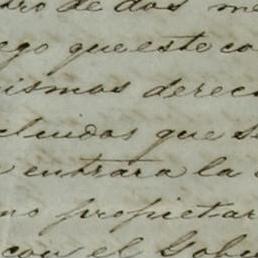 dro de dos me
ego que este co
ismos derec
cluidos que s
entrara la
no propietar
con el Gobe